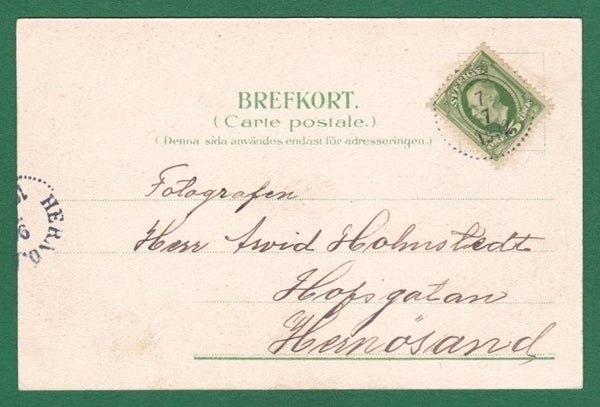 BREFKORT.
(Carte postale.)
(Denna sida användes endast för adresseringen.)
SVERIGE
7
7
HERNÖ
Fotografen
Herr Arvid Holmstedt
Hofsgatan
Hernösand